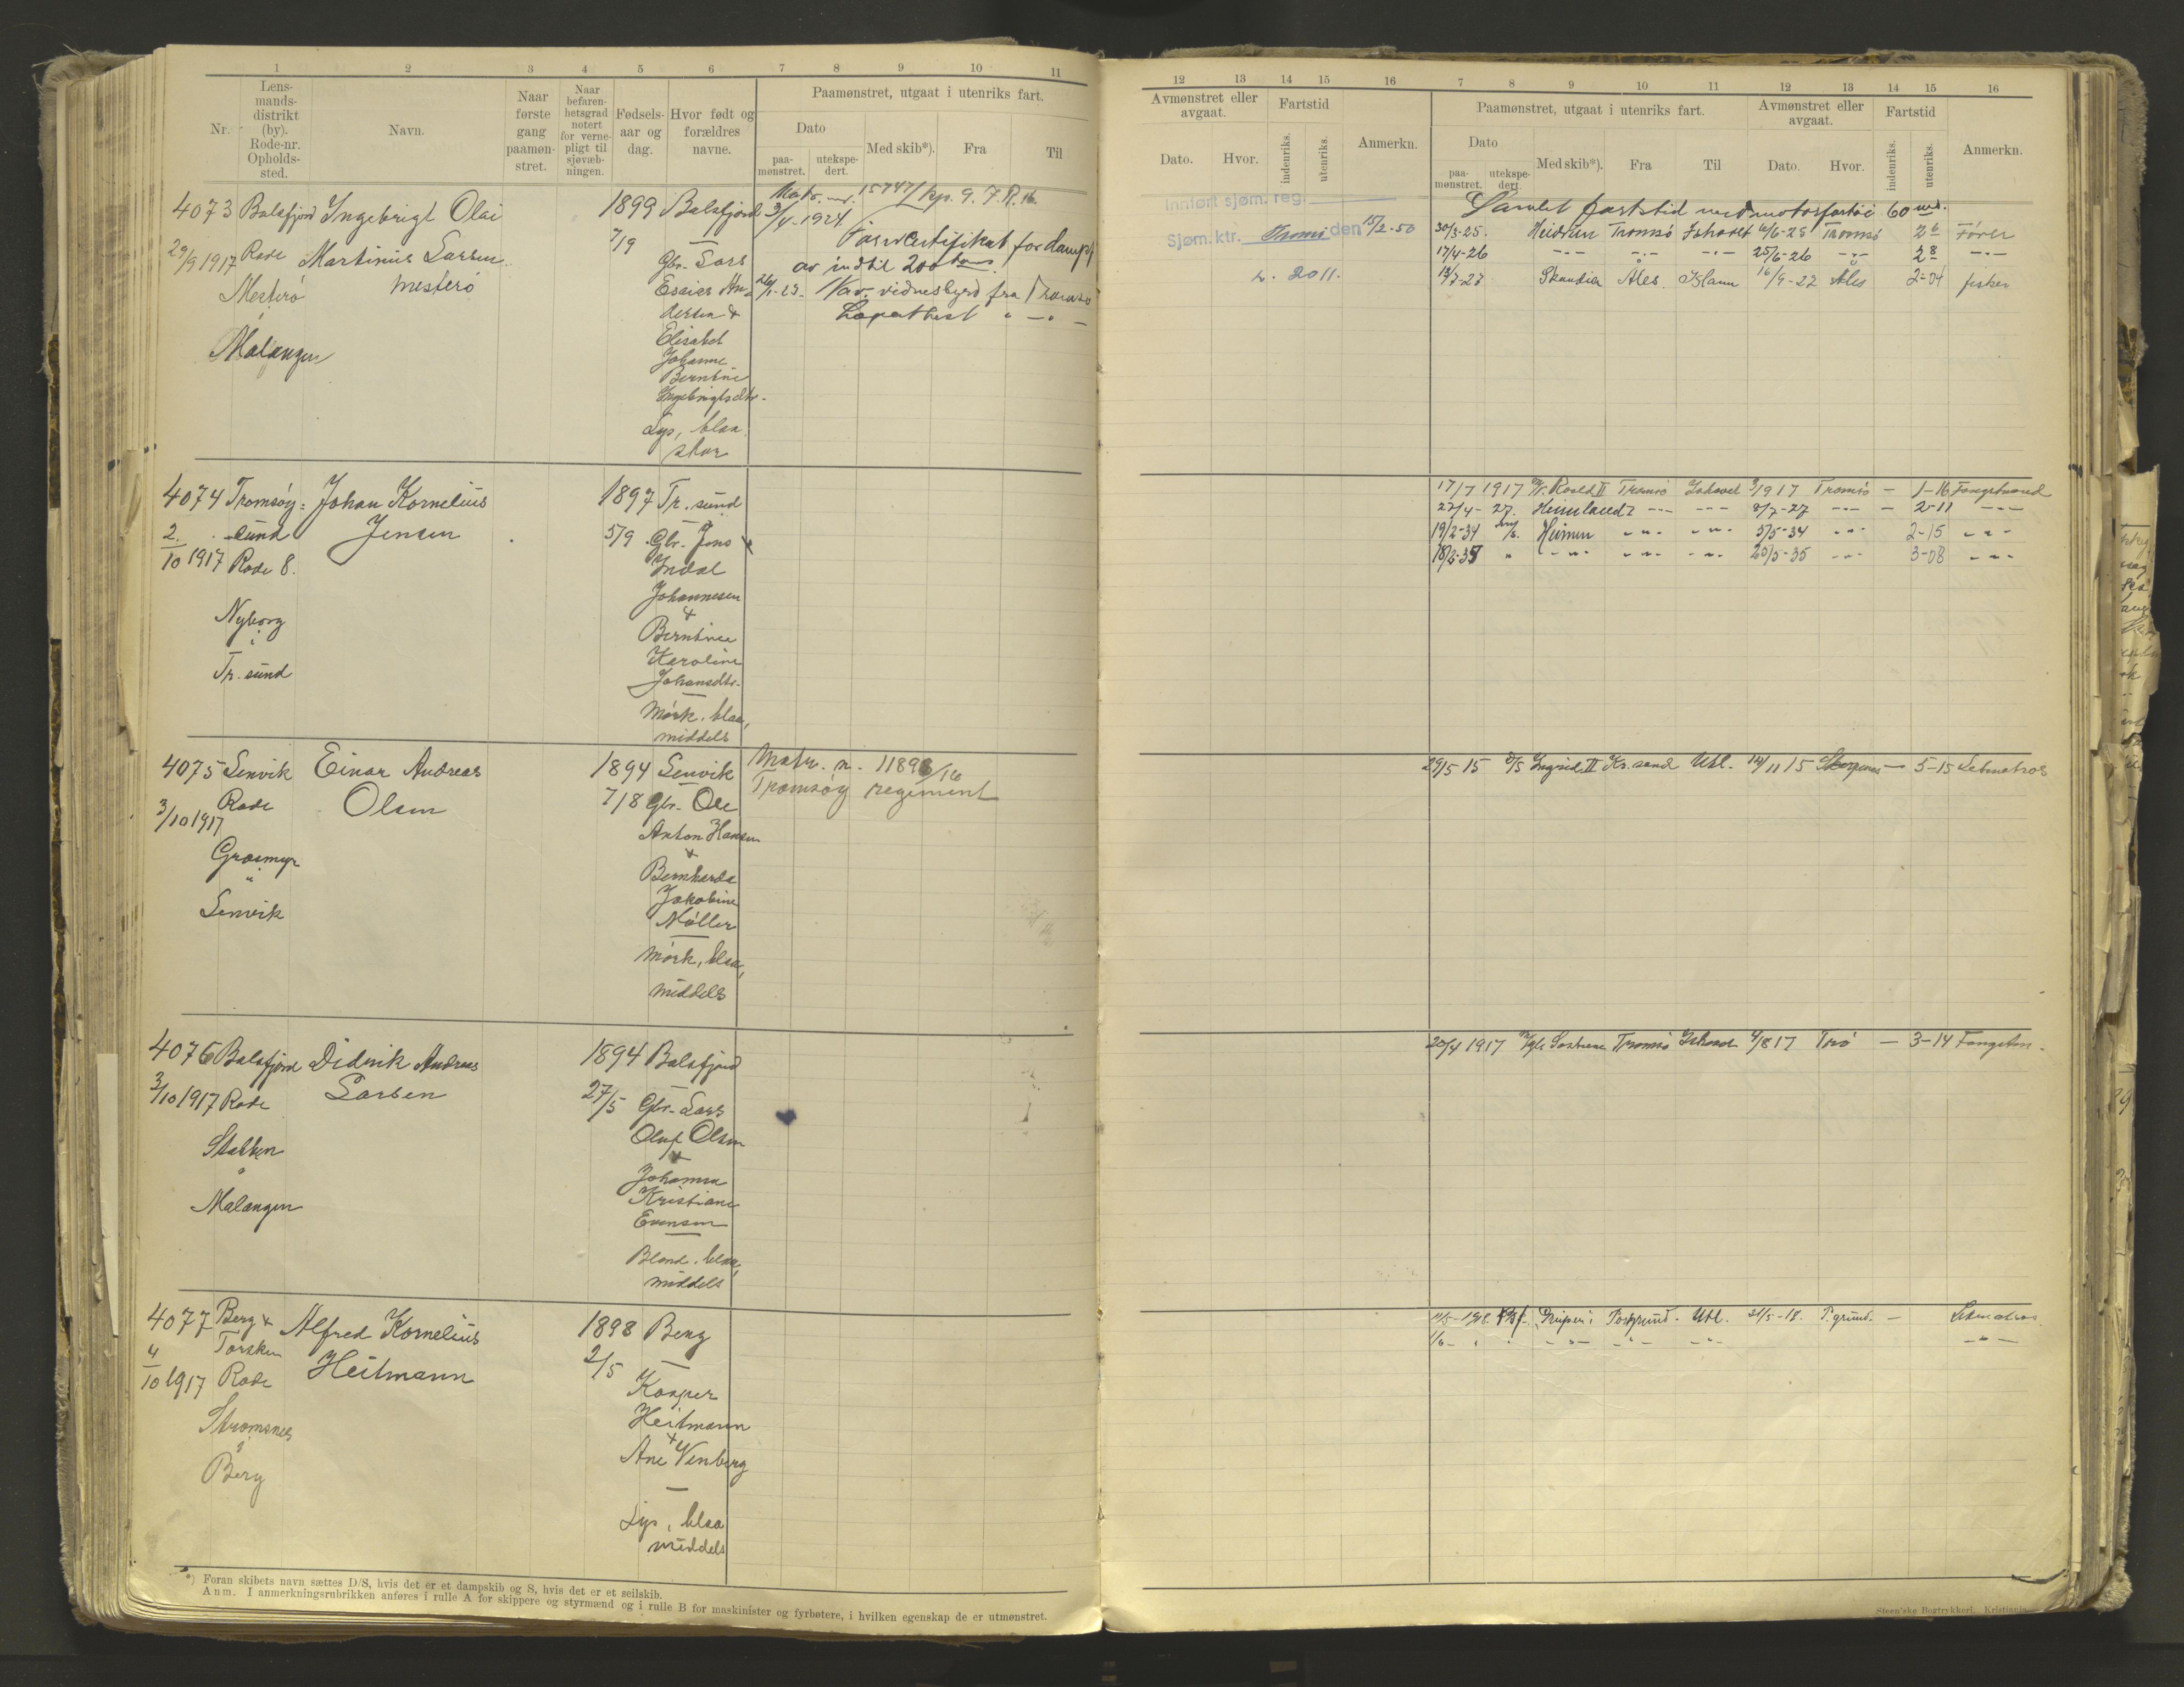 1 2 3 4 5 6 7 8 9 10 11
Nr.
Lens-
mands-
distrikt
(by).
Rode-nr.
Opholds-
sted.
Navn.
Naar
første
gang
paamøn-
stret.
Naar
befaren-
hetsgrad
notert
for verne-
pligt til
sjøvæb-
ningen.
Fødsels-
aar og
dag.
Hvor født og
forældres
navne.
Paamønstret, utgaat i utenriks fart.
Dato
paa-
mønstret.
utekspe-
dert.
Med skib*).
Fra
Til
4073 Balsfjord Ingebrigt Olai
29/9 1917 Rode Martinius Larsen
Mesterø Mesterø
i
Malangen
1899 Balsfjord
7/9
Gbr. Lars
Elisabet
Johanne
Berntine
Ingebrigtsdtr.
Lys, blaa
stor
Matr. nr. 15747/
3/4-1924
for damps
av indtil 200 tons
vidnesbyrd fra Tromsø
4074 Tromsøy= Johan Kornelius
sund Jensen
2/10 1917 Rode 8.
Nyborg
i
Tr. sund
1897 Tr. sund
5/9 Gbr. Jens
Indal
Johannesen
&
Berntine
Karoline
Johansdtr.
Mørk, blaa,
middels
4075 Lenvik Einar Andreas
Rode Olsen
3/10 1917
Grasmyr
"
Lenvik
1894 Lenvik
7/8 Gbr. Ole
Anton Hansen
&
Bernharda
Jakobine
Møller
Mørk, blaa,
middels
Matr. n. 11898/16
Tromsøy regiment
4076 Balsfjord Didrik Andreas
3/10 1917 Rode Larsen
Stakken
"
Malangen
1894 Balsfjord
27/5 Gbr. Lars
Oluf Olsen
&
Johanna
Kristiane
Evensen
Blond, blaa,
middels
4077 Berg & Alfred Kornelius
Torsken Heitmann
4/10 1917 Rode
Strømsnes
i
Berg
1898 Berg
2/5
Kasper
Heitmann
&
Ane Venberg
Lys, blaa
middels
*) Foran skibets navn sættes D/S, hvis det er et dampskib og S, hvis det er et seilskib.
Anm. I anmerkningsrubrikken anføres i rulle A for skippere og styrmænd og i rulle B for maskinister og fyrbøtere, i hvilken egenskap de er utmønstret.
12 13 14 15 16 7 8 9 10 11 12 13 14 15 16
Avmønstret eller
avgaat.
Dato.
Hvor.
Fartstid
indenriks.
utenriks.
Anmerkn.
Paamønstret, utgaat i utenriks fart.
Dato
paa-
mønstret.
utekspe-
dert.
Med skib*).
Fra
Til
Avmønstret eller
avgaat.
Dato.
Hvor.
Fartstid
indenriks.
utenriks.
Anmerkn.
Innført sjøm. reg.
Sjøm. ktr. Tromsø den 15/2-50
L. 2011.
Samlet fartstid med motorfartøi 60 md.
30/3-25. Heidrun Tromsø Ishavet 16/6-25 Tromsø 2 6 Fører
17/4-26 -"- -"- -"- 25/6-26 -"- 2 8 -"-
Skandia Ales. Island 16/9-27 Ales 2-04 fisker
17/7 1917 Roald II Tromsø Ishavet 1917 Tromsø - 1-16 Fangstmand
27/4-27. Heimland I -"- -"- 8/7-27 -"- - 2-11 -"-
19/2-34 Heimen -"- -"- 5/5-34 -"- 2-15 -"-
18/2-35 " -"- -"- -"- 25/5-35 -"- 3-08 -"-
29/5 15 S/S Ingrid II Kr. sand Utl. 14/11 15 - 5-15 Letmatros
20/4 1917 Tromsø Ishavet 4/8 17 Tr.ø - 3-14 Fangstm.
Porsgrund. Utl. 31/5-18. P.grund. - Letmatros
1/6- " " -"- -"- -"- -"-
Steen'ske Bogtrykkeri, Kristiania